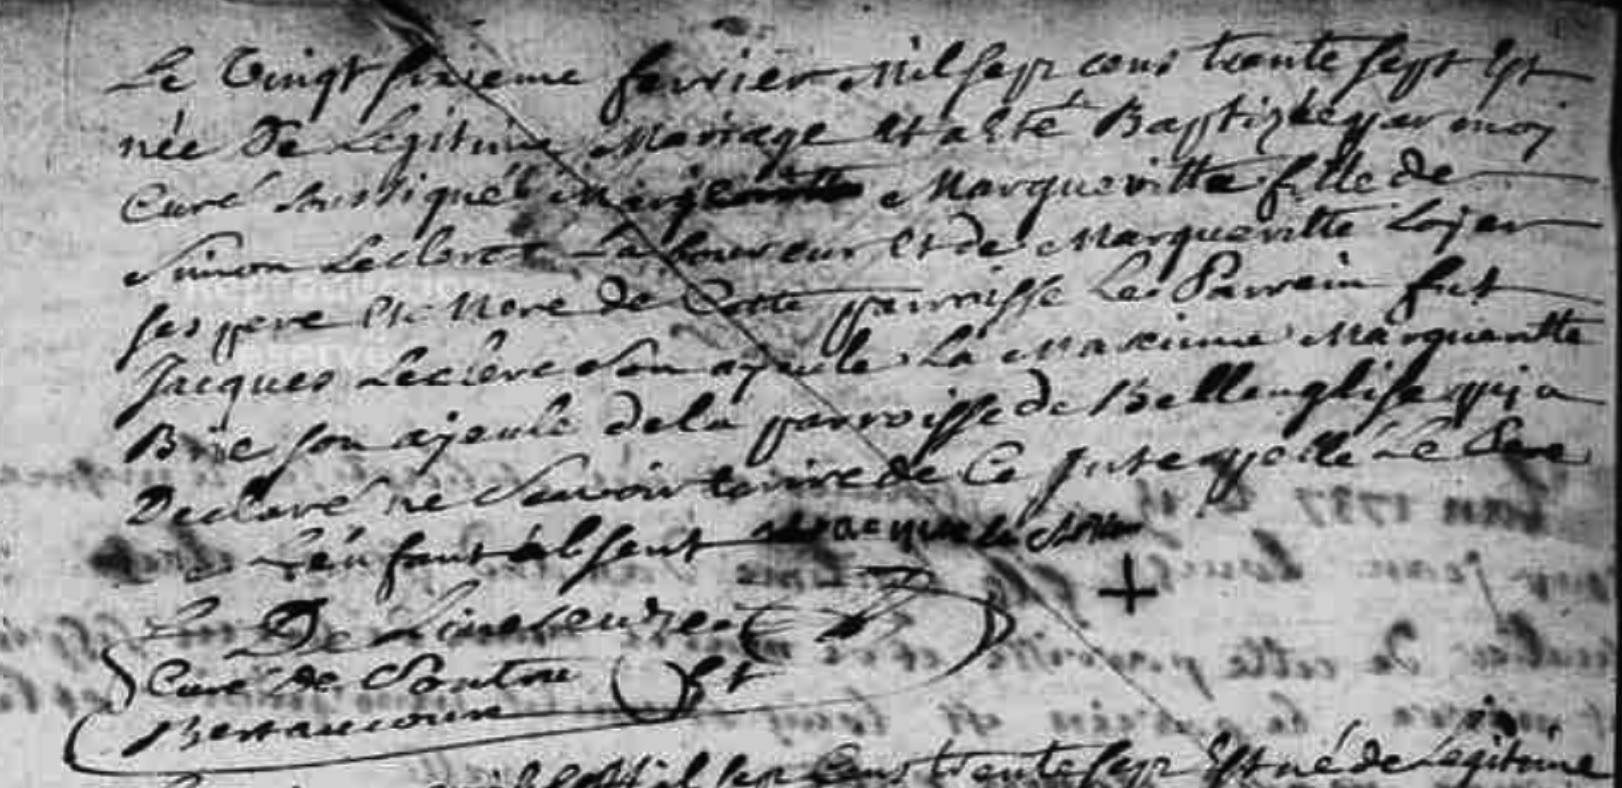 Le Vingt sixieme fevrier Mil sept cens trente sept Est
née De Legitime Mariage Et a Eté Baptizée par moy
Curé soussigné Margueritte fille de
Simon Leclerc Laboureur Et de Margueritte Lojer
ses pere Et Mere de Cette parroisse Le Parrein fut
Jacques Leclerc Son ayeule La Mareinne Margueritte
Brie son ajeule de la parroisse de Bellenglise qui a
Declaré ne Scavoir Ecrire de Ce Interpellé Le Pere
de L'enfant absent
De
Curé de Pontru Et
Bertaucourt
Mil sept Cens trente sept Est né de Legitime